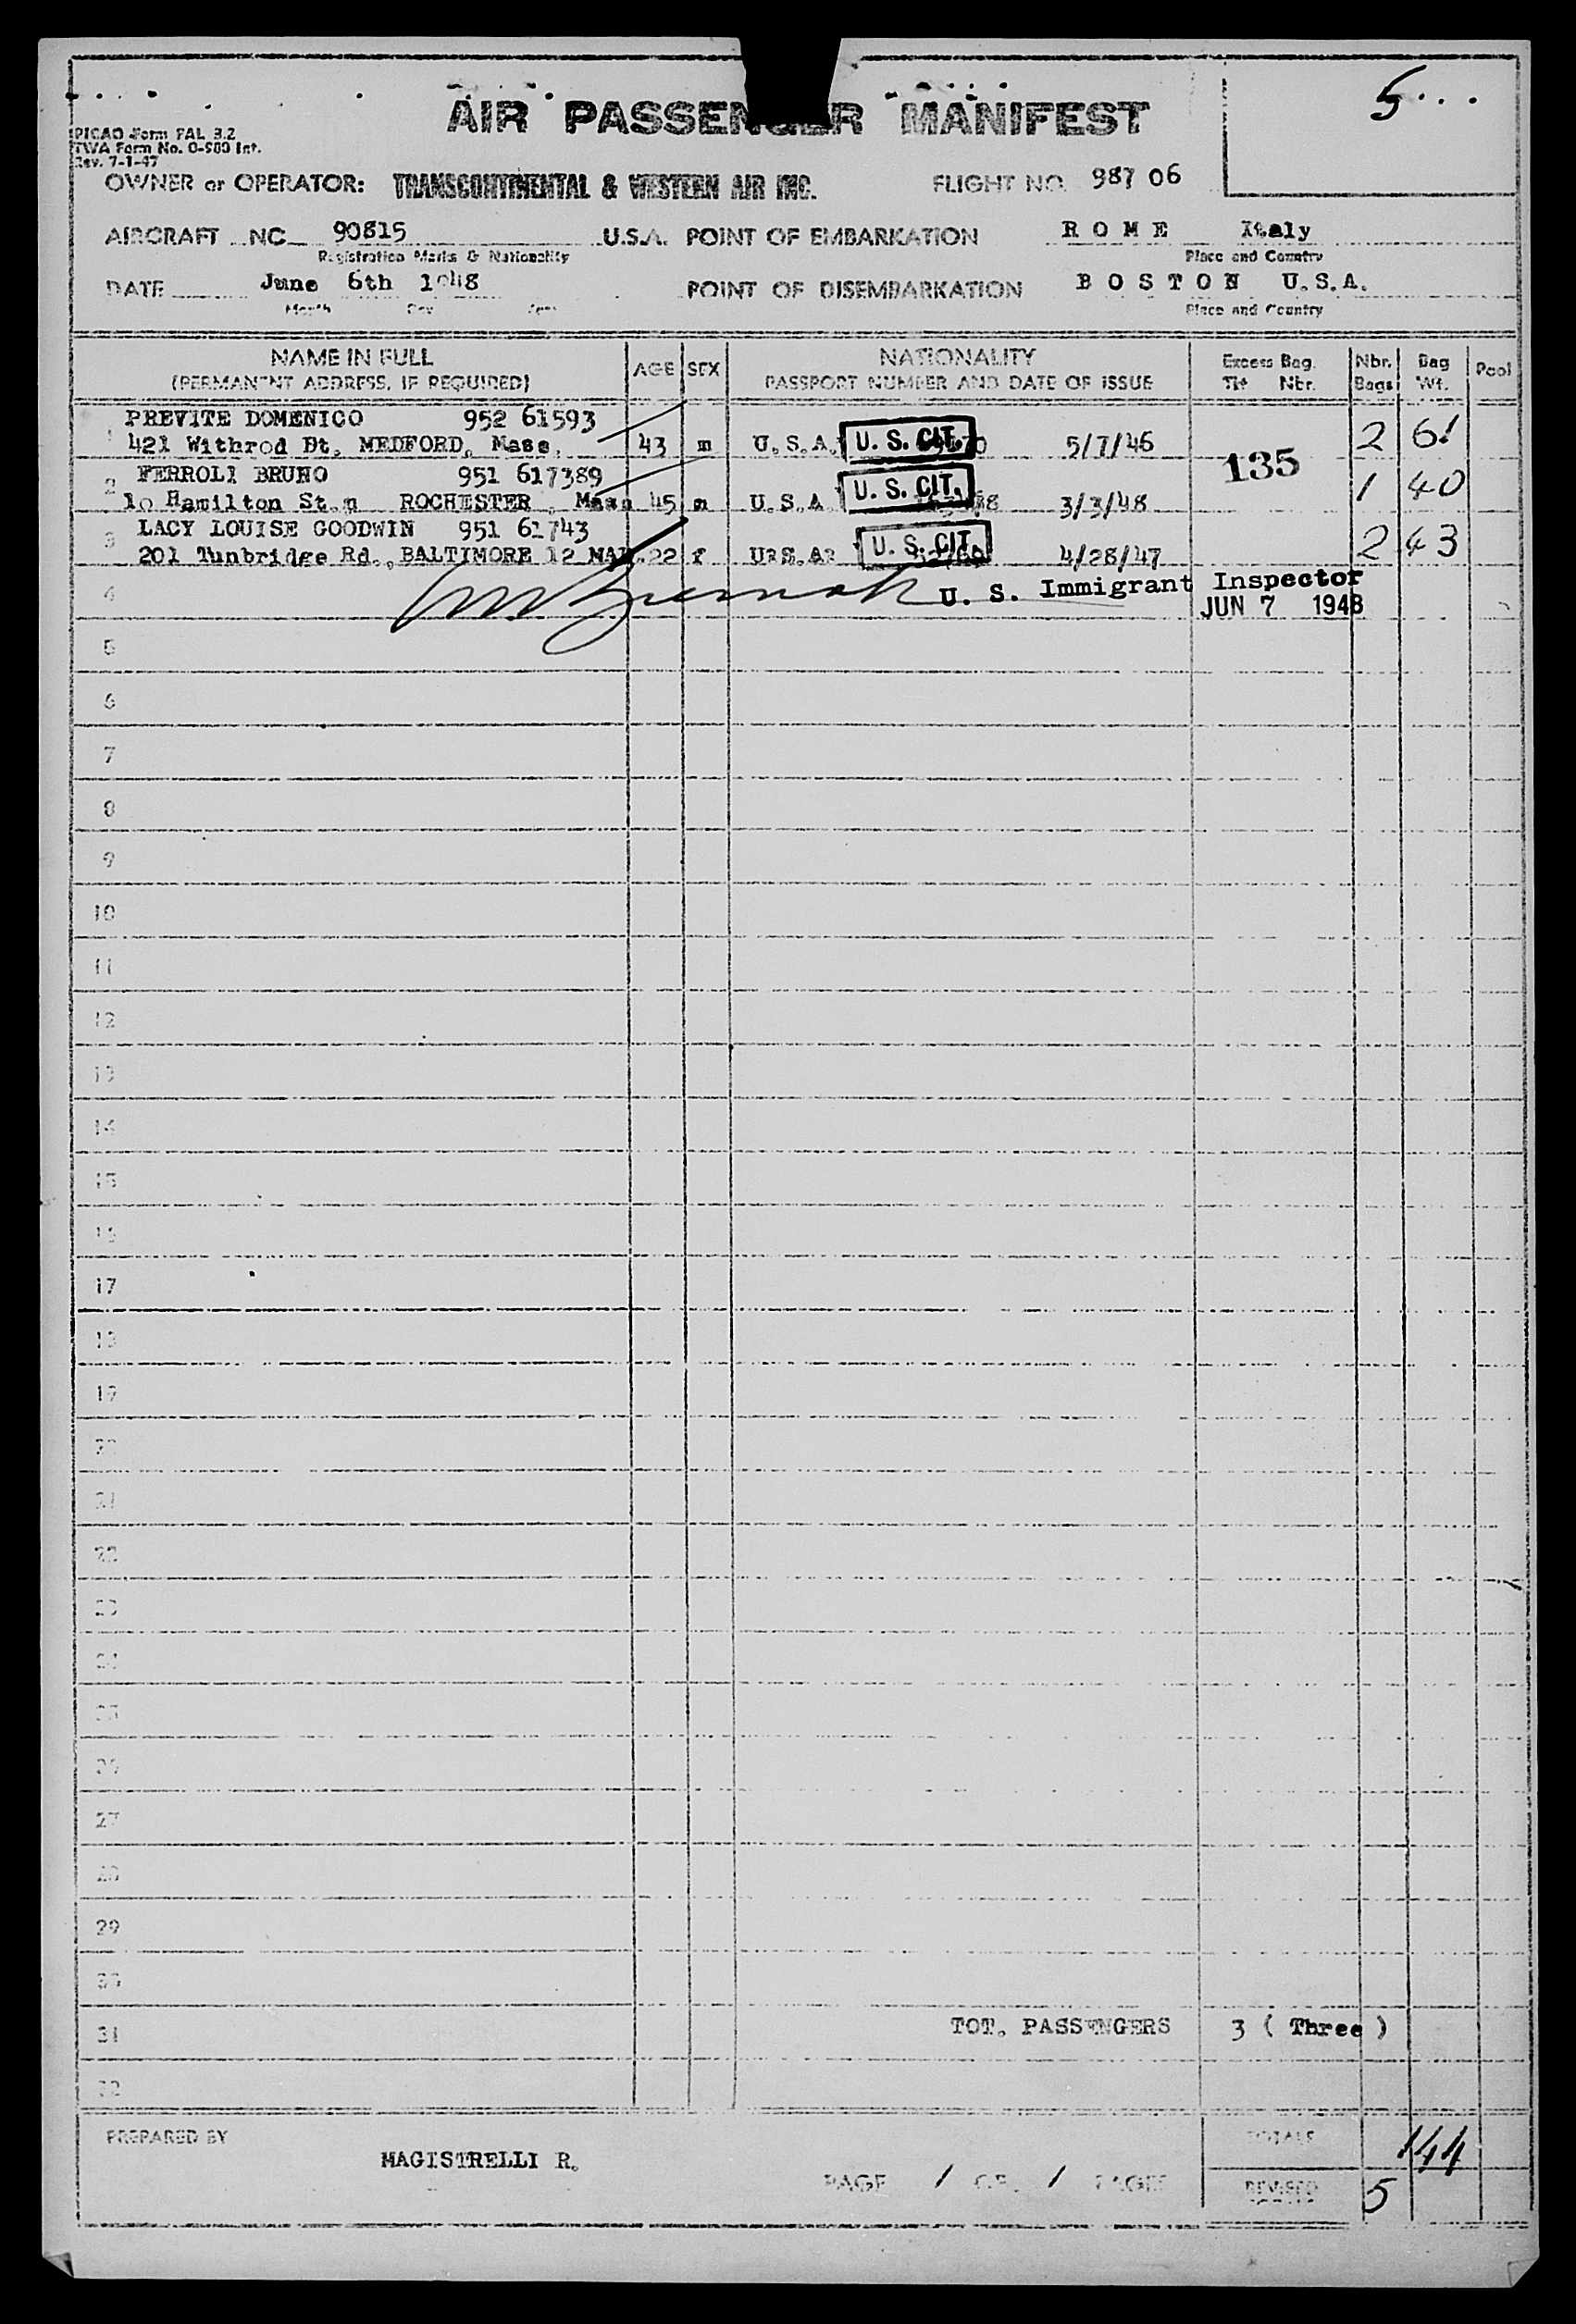 5...
AIR PASSENGER MANIFEST
PICAO Form FAL 3.2
TWA Form No. O-980 Int.
Rev. 7-1-47
OWNER or OPERATOR: TRANSCONTINENTAL & WESTERN AIR INC. FLIGHT NO. 987 06
AIRCRAFT NC 90815 U.S.A. POINT OF EMBARKATION R O M E Italy
Registration Marks & Nationality Place and Country
DATE June 6th 1948 POINT OF DISEMBARKATION B O S T O N U.S.A.
Month Day Year Place and Country
NAME IN FULL AGE SEX NATIONALITY Excess Bag. Nbr. Bag Pool
(PERMANENT ADDRESS, IF REQUIRED) PASSPORT NUMBER AND DATE OF ISSUE Tkt Nbr. Bags Wt.
1 PREVITE DOMENICO 952 61593
421 Withrod Bt. MEDFORD, Mass. 43 m U.S.A. U. S. CIT. 5/7/46 2 61
135
2 FERROLI BRUNO 951 617389
10 Hamilton St.n ROCHESTER , Mass 45 m U.S.A U. S. CIT. 3/3/48 1 40
3 LACY LOUISE GOODWIN 951 61743
201 Tunbridge Rd., BALTIMORE 12 22 f U.S.A U. S. CIT. 4/28/47 2 43
4 U. S. Immigrant Inspector
JUN 7 1948
5
6
7
8
9
10
11
12
13
14
15
16
17
18
19
20
21
22
23
24
25
26
27
28
29
30
31 TOT. PASSENGERS 3 ( Three )
32
PREPARED BY TOTALS 144
MAGISTRELLI R.
PAGE 1 OF 1 PAGES REVISED 5